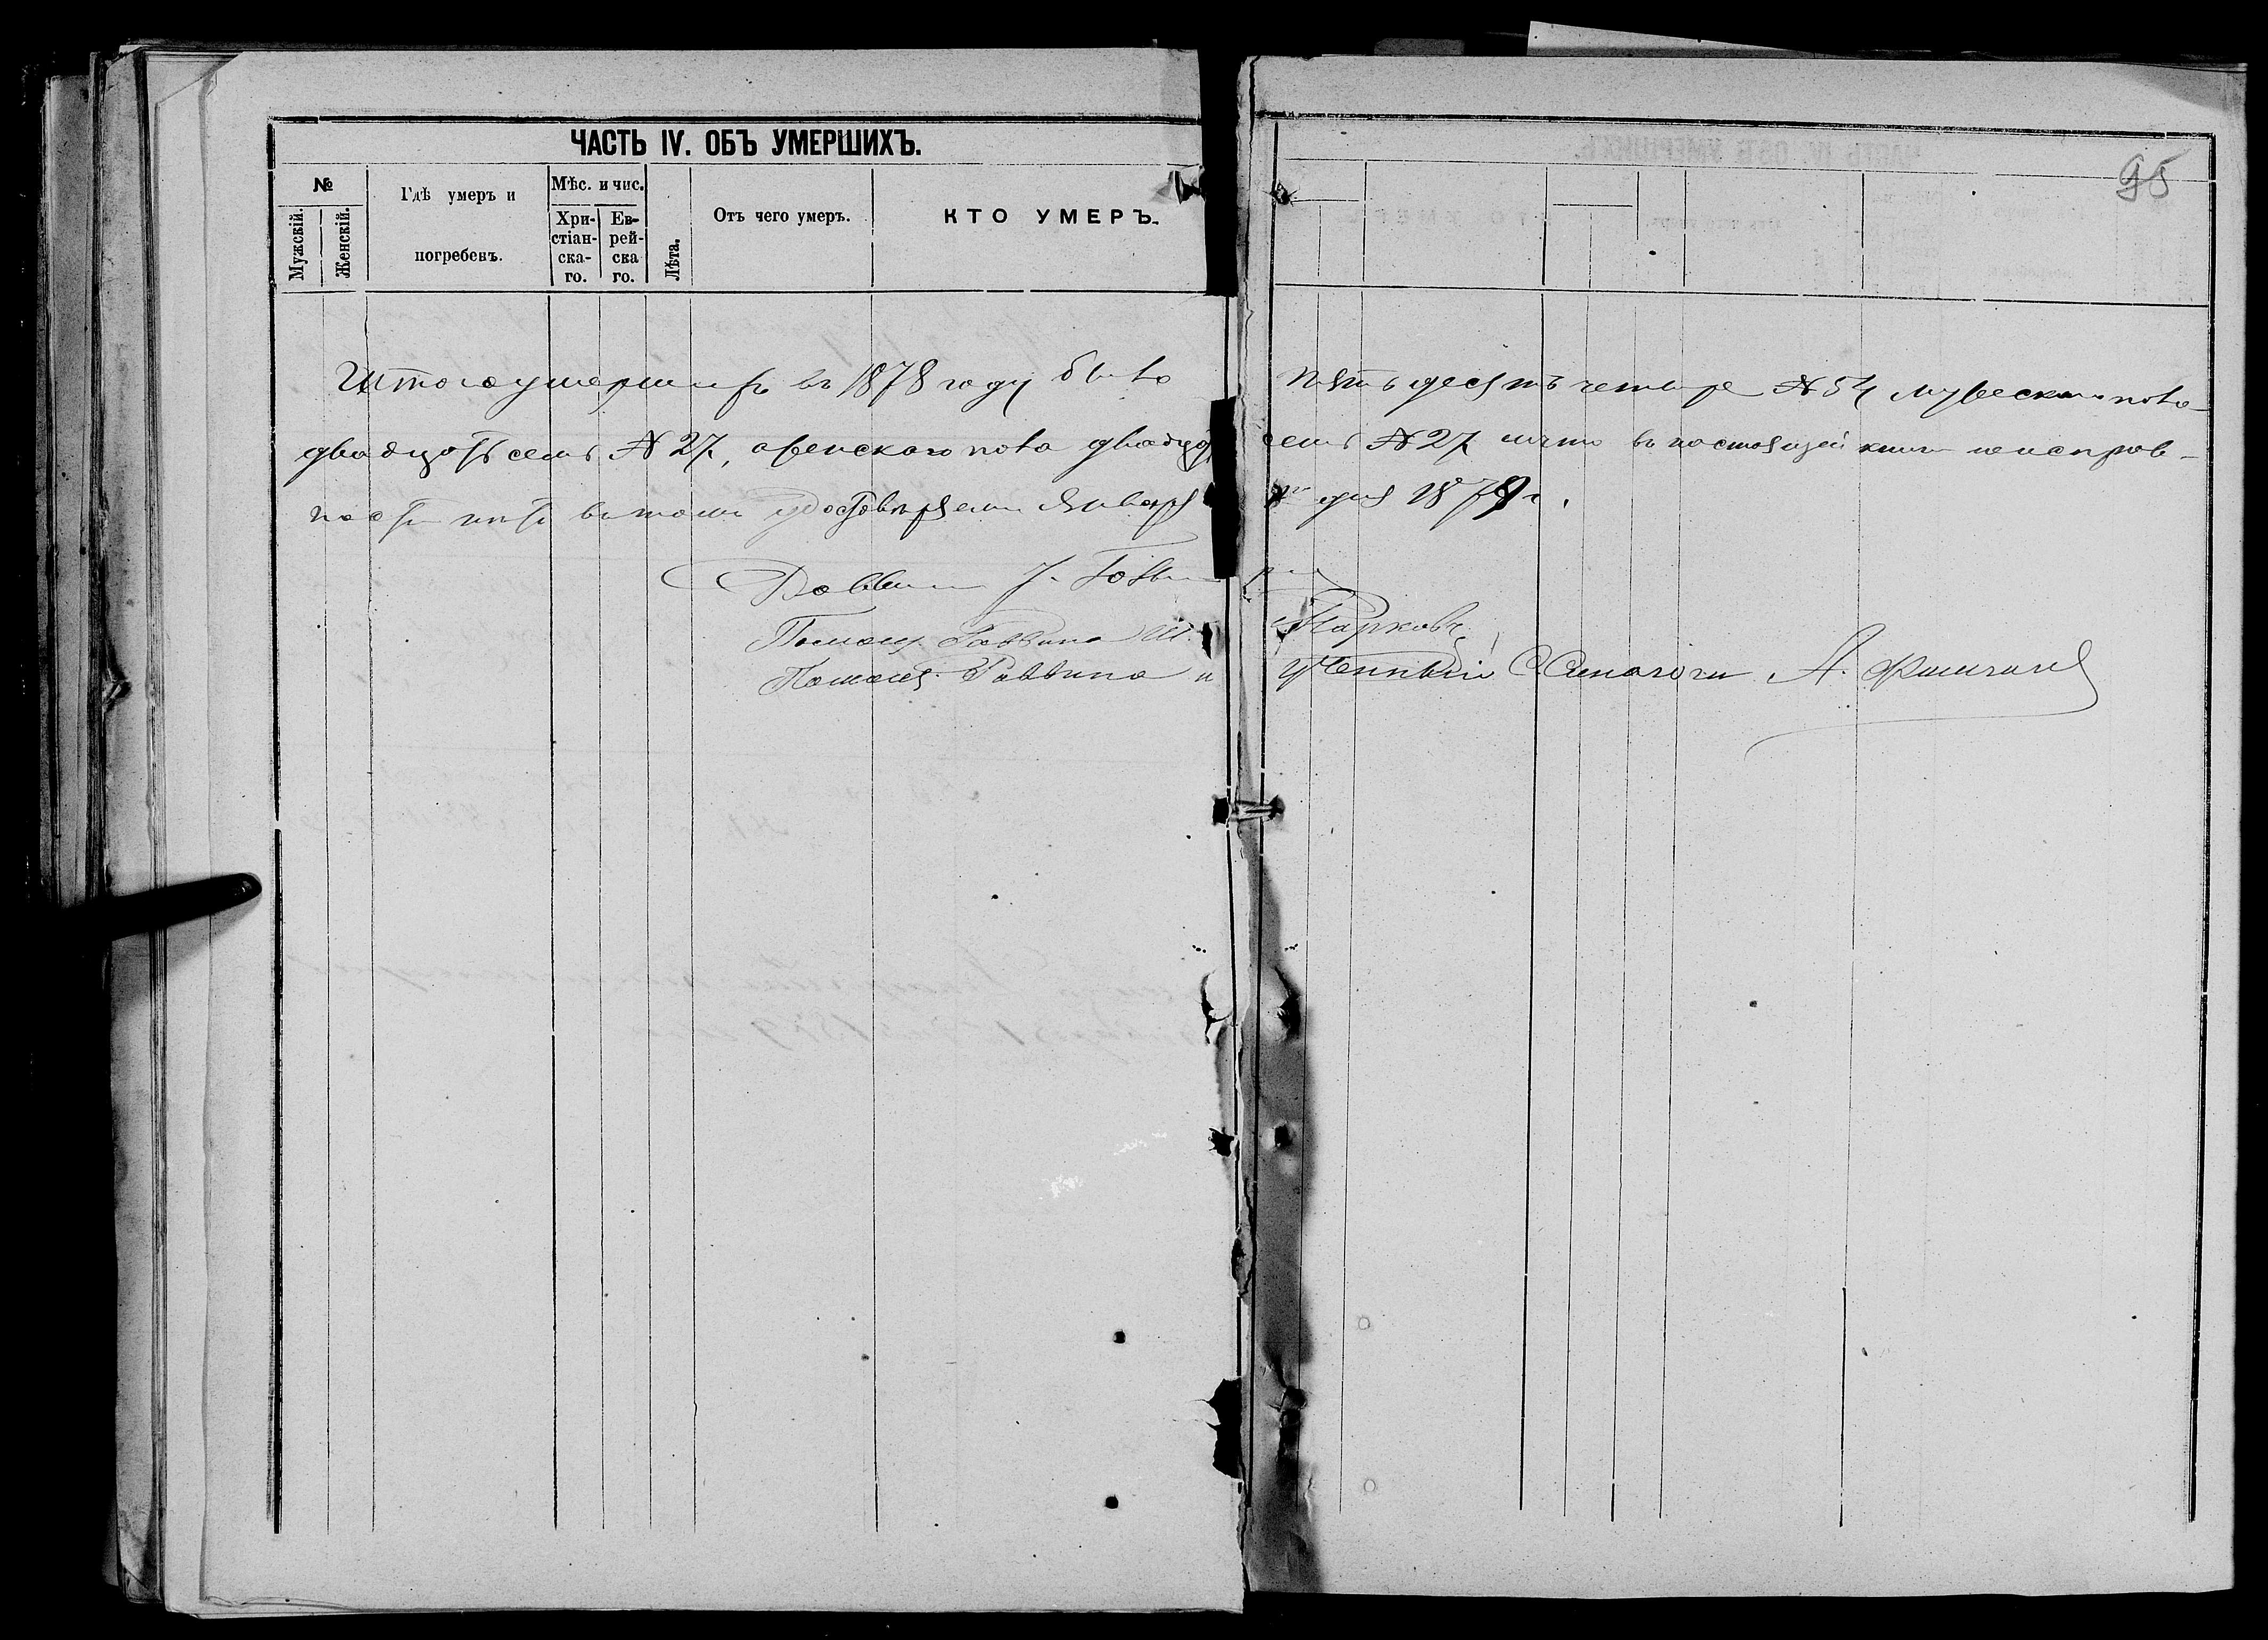 ЧАСТЬ IV. ОБЪ УМЕРШИХЪ.
95
№
Мужскій.
Женскій.
Гдѣ умеръ и
погребенъ.
Мѣс. и чис.
Хри-
стіан-
ска-
го.
Ев-
рей-
ска
го.
Лѣта.
Отъ чего умеръ.
КТО УМЕРЪ.
Итого умершихъ въ 1878 году было пятьдесятъ четыре №54 мужескаго пола
двадцать семь №27, женскаго пола двадцать семь №27 и что въ настоящей книги неисправ-
ностей нѣтъ въ томъ удостовѣряемъ Января дня 1879 г.
Раввинъ
Помощ. Раввина Ш.
Помощ. Раввина и ученный Синагоги А.